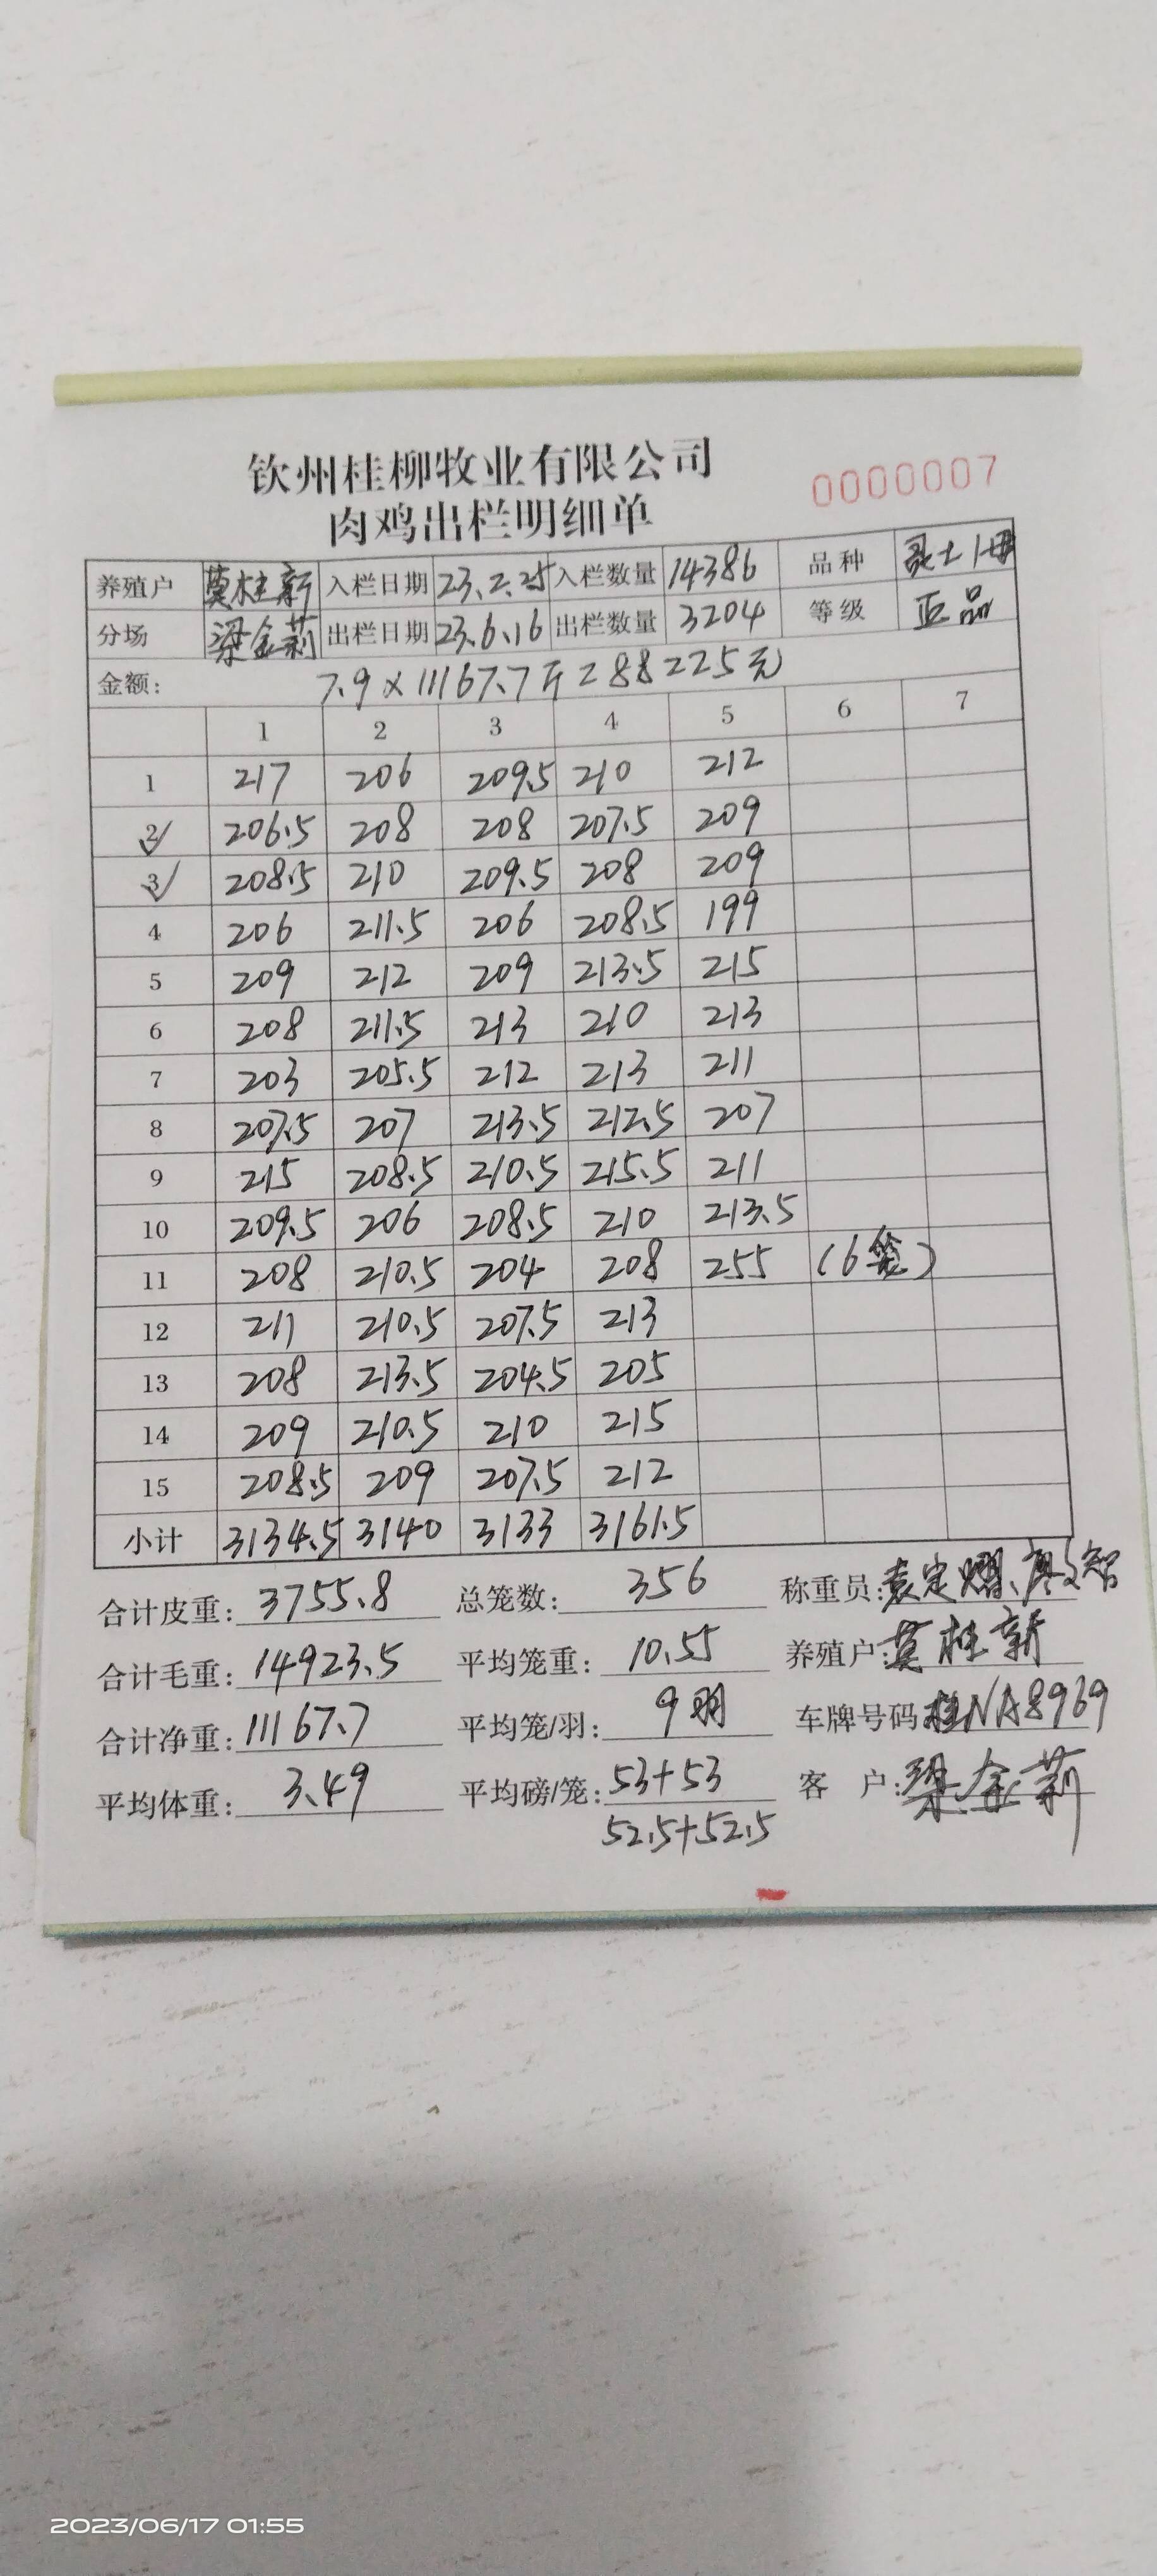 钦州桂柳牧业有限公司
0000007
肉鸡出栏明细单
养殖户 莫桂新 入栏日期 23.2.25 入栏数量 14386 品种 灵土1母
分场 梁金莉 出栏日期 23.6.16 出栏数量 3204 等级 正品
金额: 7.9×11167.7斤=88225元
1 2 3 4 5 6 7
1 217 206 209.5 210 212
2 206.5 208 208 207.5 209
3 208.5 210 209.5 208 209
4 206 211.5 206 208.5 199
5 209 212 209 213.5 215
6 208 211.5 213 210 213
7 203 205.5 212 213 211
8 207.5 207 213.5 212.5 207
9 215 208.5 210.5 215.5 211
10 209.5 206 208.5 210 213.5
11 208 210.5 204 208 255 (6笼)
12 211 210.5 207.5 213
13 208 213.5 204.5 205
14 209 210.5 210 215
15 208.5 209 207.5 212
小计 3134.5 3140 3133 3161.5
合计皮重: 3755.8 总笼数: 356 称重员: 袁定熠、廖文智
合计毛重: 14923.5 平均笼重: 10.55 养殖户: 莫桂新
合计净重: 11167.7 平均笼/羽: 9羽 车牌号码 桂NA8969
平均体重: 3.49 平均磅/笼: 53+53 客 户: 梁金莉
52.5+52.5
2023/06/17 01:55